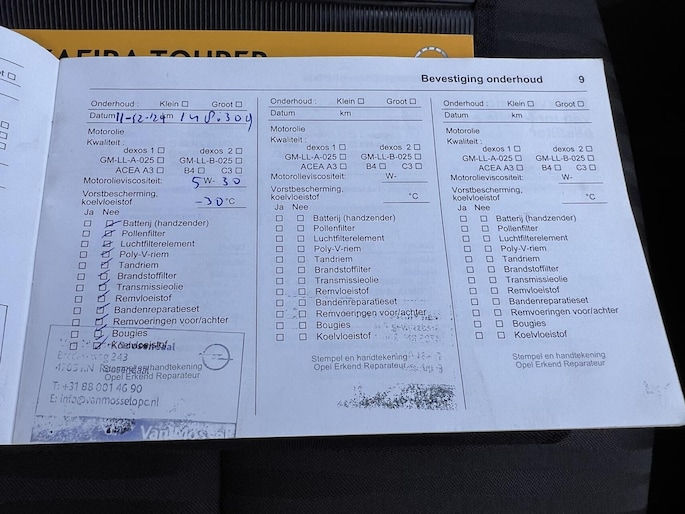 ZAFIRA TOURER
Bevestiging onderhoud 9
Onderhoud : Klein □ Groot □
Datum 11-12-24 km 148.309
Motorolie
Kwaliteit :
dexos 1 □ dexos 2 □
GM-LL-A-025 □ GM-LL-B-025 □
ACEA A3 □ B4 □ C3 □
Motorolieviscositeit: 5 W- 30
Vorstbescherming,
koelvloeistof -30 °C
Ja Nee
Batterij (handzender)
Pollenfilter
Luchtfilterelement
Poly-V-riem
Tandriem
Brandstoffilter
Transmissieolie
Remvloeistof
Bandenreparatieset
Remvoeringen voor/achter
Bougies
Koelvloeistof
Stempel en handtekening
Opel Erkend Reparateur
243
T: +31 88 001 46 90
E: info@vanmosselopc.nl
Onderhoud : Klein □ Groot □
Datum km
Motorolie
Kwaliteit :
dexos 1 □ dexos 2 □
GM-LL-A-025 □ GM-LL-B-025 □
ACEA A3 □ B4 □ C3 □
Motorolieviscositeit: W-
Vorstbescherming,
koelvloeistof °C
Ja Nee
□ □ Batterij (handzender)
□ □ Pollenfilter
□ □ Luchtfilterelement
□ □ Poly-V-riem
□ □ Tandriem
□ □ Brandstoffilter
□ □ Transmissieolie
□ □ Remvloeistof
□ □ Bandenreparatieset
□ □ Remvoeringen voor/achter
□ □ Bougies
□ □ Koelvloeistof
Stempel en handtekening
Opel Erkend Reparateur
Onderhoud : Klein □ Groot □
Datum km
Motorolie
Kwaliteit :
dexos 1 □ dexos 2 □
GM-LL-A-025 □ GM-LL-B-025 □
ACEA A3 □ B4 □ C3 □
Motorolieviscositeit: W-
Vorstbescherming,
koelvloeistof °C
Ja Nee
□ □ Batterij (handzender)
□ □ Pollenfilter
□ □ Luchtfilterelement
□ □ Poly-V-riem
□ □ Tandriem
□ □ Brandstoffilter
□ □ Transmissieolie
□ □ Remvloeistof
□ □ Bandenreparatieset
□ □ Remvoeringen voor/achter
□ □ Bougies
□ □ Koelvloeistof
Stempel en handtekening
Opel Erkend Reparateur